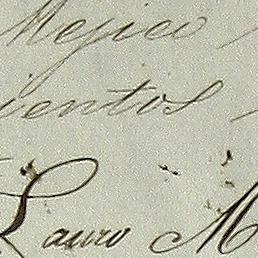 Mejico
ientos
Lauro M